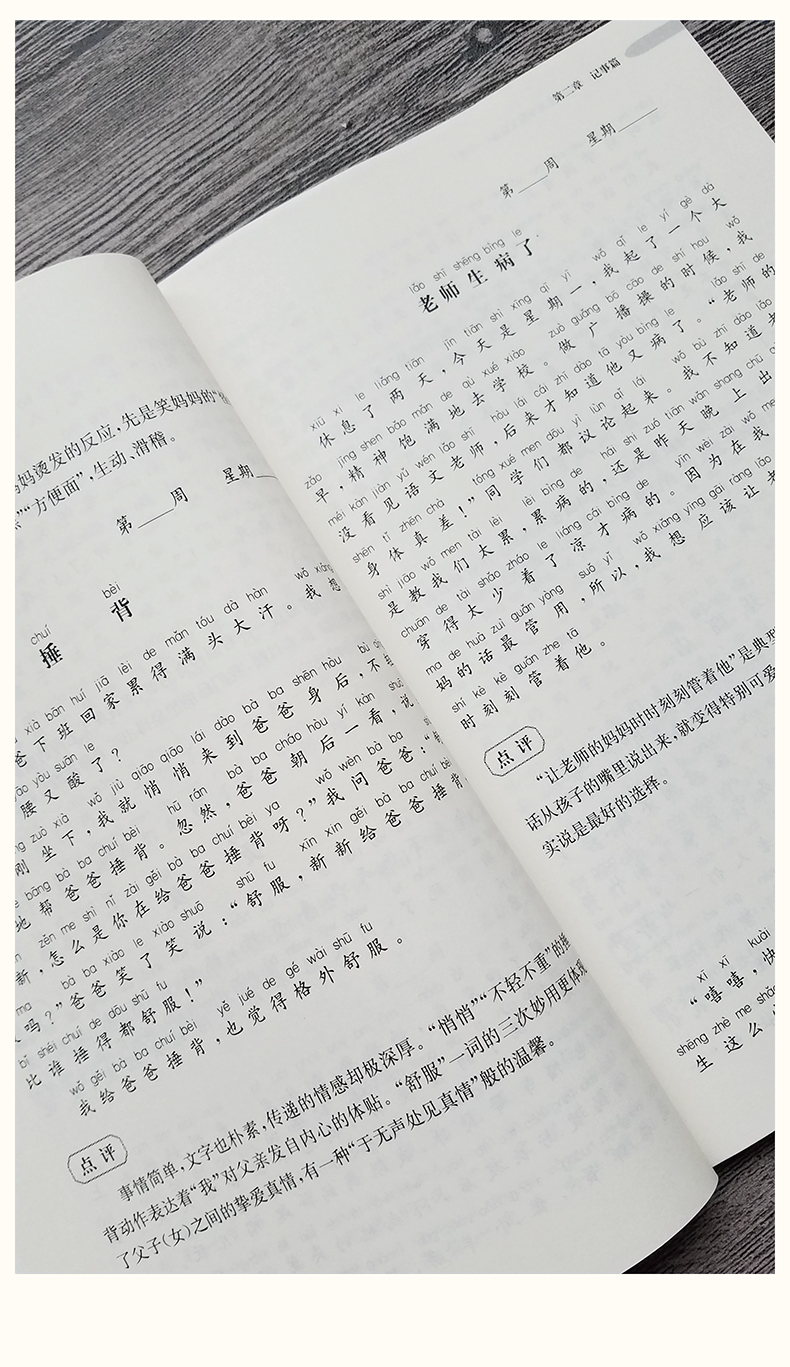 妈烫发的反应,先是笑妈妈的“
“方便面”,生动、滑稽。
第 周 星期
chuí bèi
捶 背
xià bān huí jiā lèi de mǎn tóu dà hàn wǒ xiǎng
爸下班回家累得满头大汗。我想
yāo yòu suān le
腰又酸了?
zuò xià wǒ jiù qiāo qiāo lái dào bà ba shēn hòu bù
刚坐下,我就悄悄来到爸爸身后,不
bāng bà ba chuí bèi hū rán bà ba cháo hòu yí kàn shuō
地帮爸爸捶背。忽然,爸爸朝后一看,说
zěn me shì nǐ zài gěi bà ba chuí bèi ya wǒ wèn bà ba
新,怎么是你在给爸爸捶背呀?”我问爸爸:“
ma bà ba xiào le xiào shuō shū fu xīn xin gěi bà ba chuí bèi
吗?”爸爸笑了笑说:“舒服,新新给爸爸捶背
bǐ shéi chuí de dōu shū fu
比谁捶得都舒服!”
wǒ gěi bà ba chuí bèi yě jué de gé wài shū fu
我给爸爸捶背,也觉得格外舒服。
点评
事情简单,文字也朴素,传递的情感却极深厚。“悄悄”“不轻不重”的捶
背动作表达着“我”对父亲发自内心的体贴。“舒服”一词的三次妙用更体现
了父子(女)之间的挚爱真情,有一种“于无声处见真情”般的温馨。
第二章 记事篇
第 周 星期
lǎo shī shēng bìng le
老师生病了
xiū xi le liǎng tiān jīn tiān shì xīng qī yī wǒ qǐ le yí gè dà
休息了两天,今天是星期一,我起了一个大
zǎo jīng shen bǎo mǎn de qù xué xiào zuò guǎng bō cāo de shí hou wǒ
早,精神饱满地去学校。做广播操的时候,我
méi kàn jiàn yǔ wén lǎo shī hòu lái cái zhī dào tā yòu bìng le lǎo shī de
没看见语文老师,后来才知道他又病了。“老师的
shēn tǐ zhēn chà tóng xué men dōu yì lùn qǐ lái wǒ bù zhī dào lǎo
身体真差!”同学们都议论起来。我不知道老
shì jiāo wǒ men tài lèi lèi bìng de hái shi zuó tiān wǎn shang chū
是教我们太累,累病的,还是昨天晚上出
chuān de tài shǎo zháo le liáng cái bìng de yīn wèi zài wǒ me
穿得太少着了凉才病的。因为在我
ma de huà zuì guǎn yòng suǒ yǐ wǒ xiǎng yīng gāi ràng lǎo
妈的话最管用,所以,我想应该让老
shí kè kè guǎn zhe tā
时刻刻管着他。
点评
“让老师的妈妈时时刻刻管着他”是典型
话从孩子的嘴里说出来,就变得特别可爱
实说是最好的选择。
xī xī kuài
“嘻嘻,快
shēng zhè me
生这么